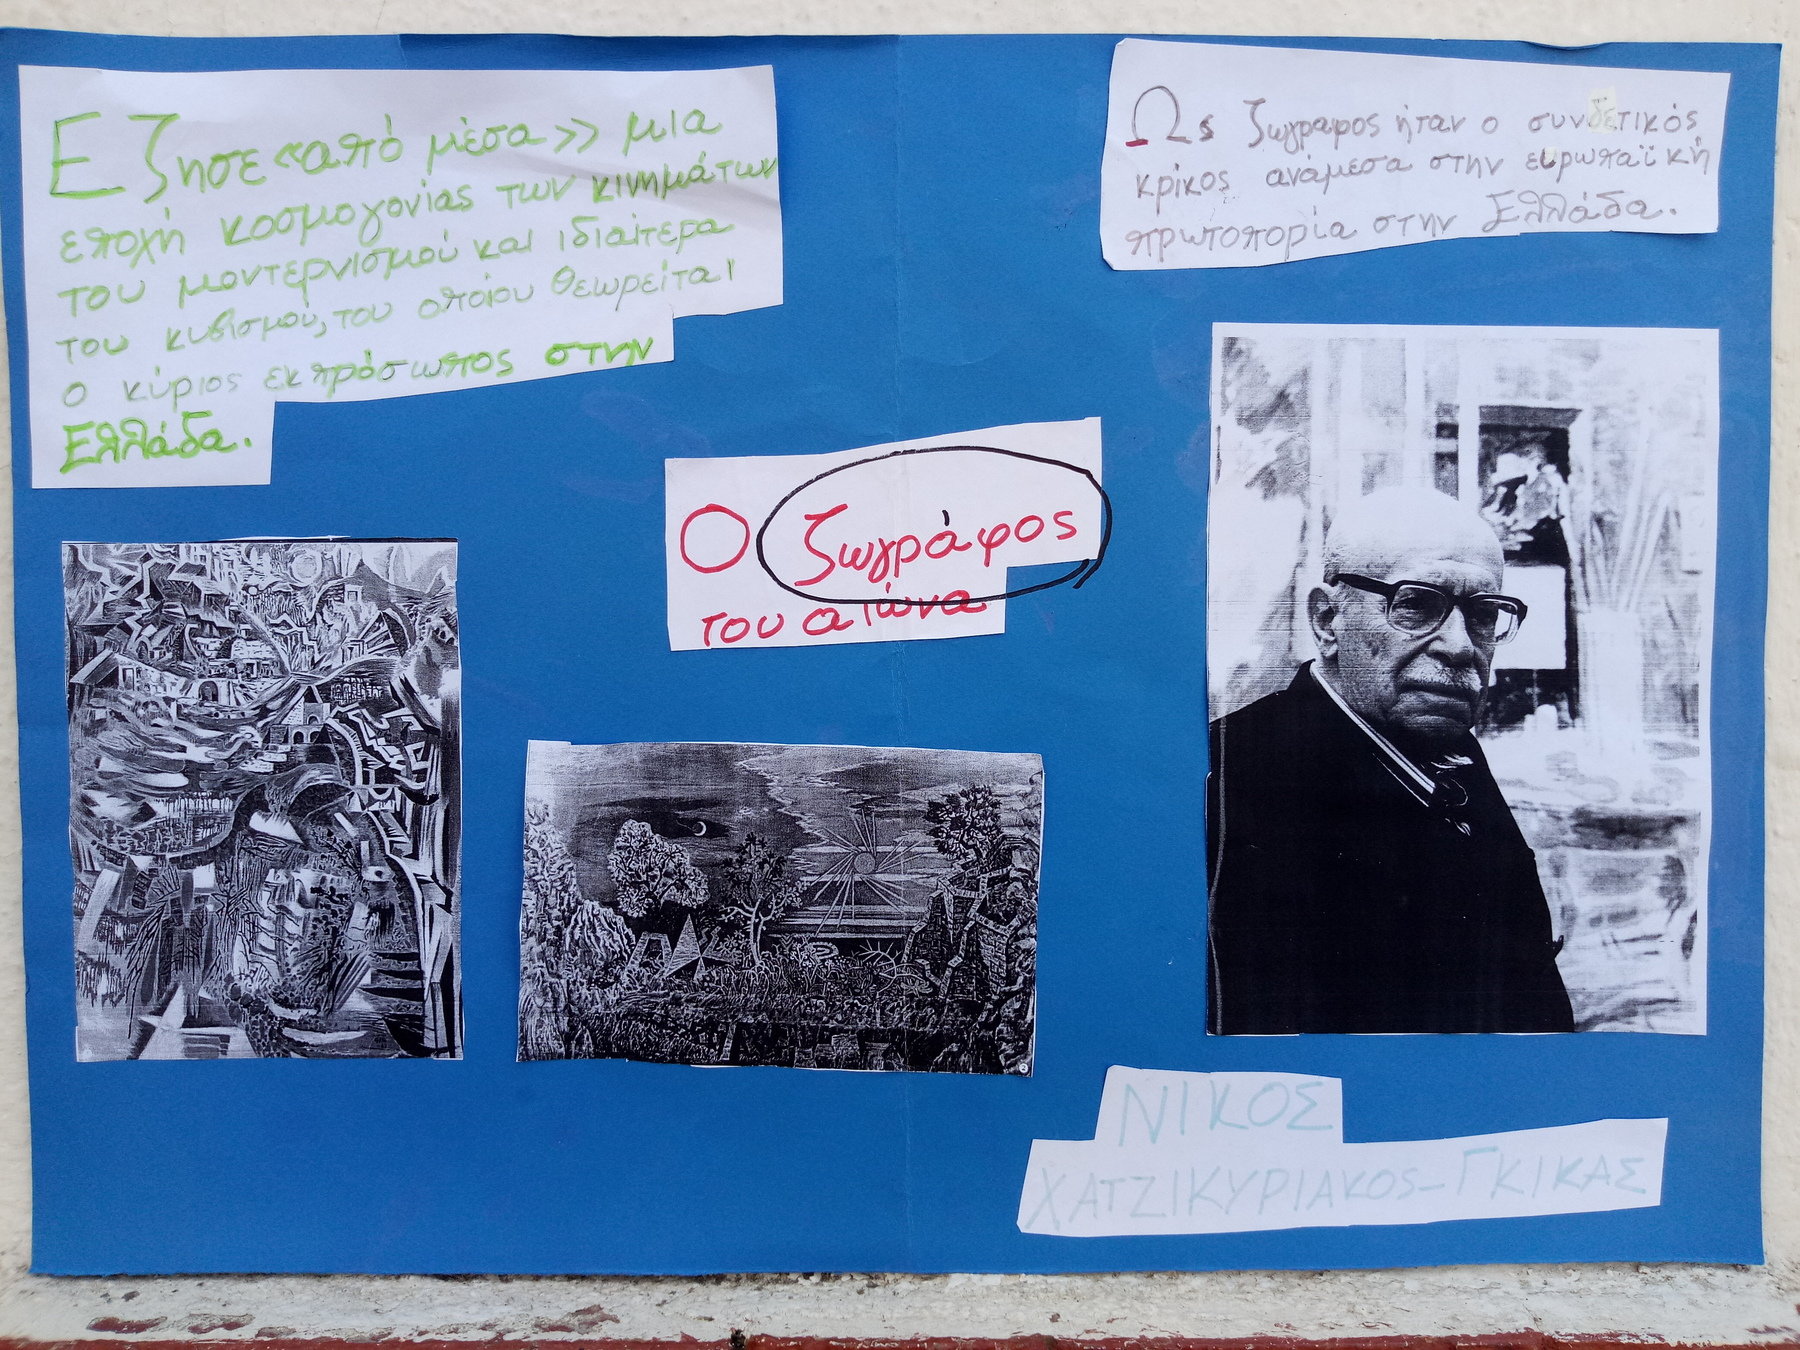 Εζησε «από μέσα» μια
εποχή κοσμογονίας των κινημάτων
του μοντερνισμού και ιδιαίτερα
του κυβισμού, του οποίου θεωρείται
ο κύριος εκπρόσωπος στην
Ελλάδα.
Ως ζωγραφος ήταν ο συνδετικός
κρίκος ανάμεσα στην ευρωπαϊκή
πρωτοπορία στην Ελλάδα.
Ο ζωγράφος
του αιώνα
ΝΙΚΟΣ
ΧΑΤΖΙΚΥΡΙΑΚΟΣ-ΓΚΙΚΑΣ